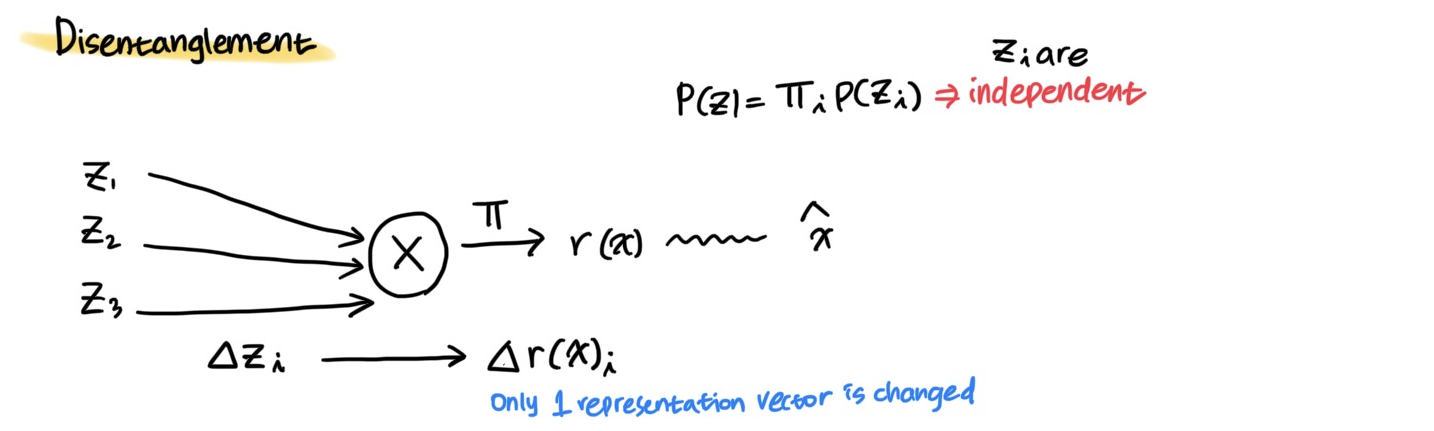 Disentanglement
Zᵢ are
P(Z) = πᵢ P(Zᵢ) ⇒ independent
Z₁
Z₂
Z₃
X
π
r(x)
x̂
ΔZᵢ → Δr(x)ᵢ
Only 1 representation vector is changed